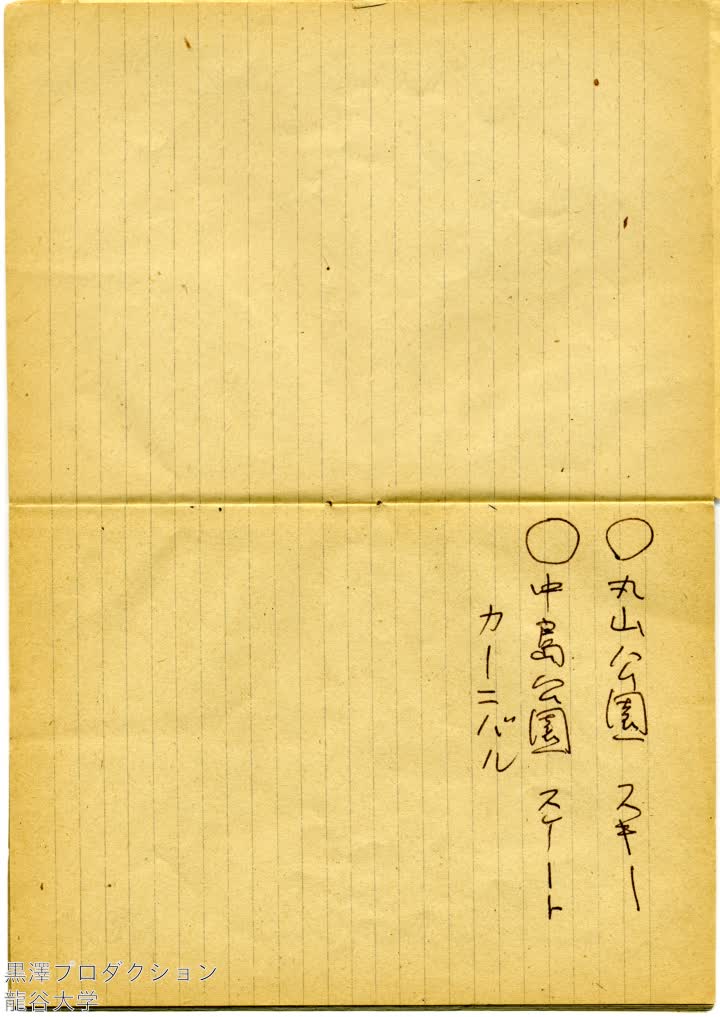 ○丸山公園 スキー
○中島公園 スケート
カーニバル
黒澤プロダクション
龍谷大学